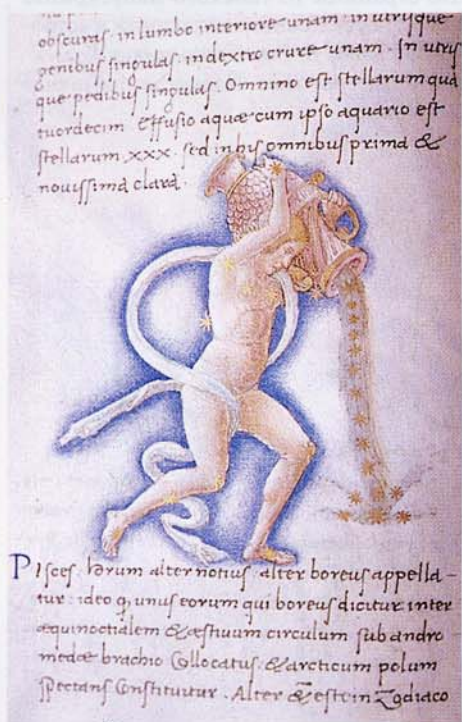 obscuras. in lumbo interiore unam. in utrisque
genibus singulas. in dextro crure unam. In utris
que pedibus singulas. Omnino est stellarum qua
tuordecim. Effusio aquæ cum ipso aquario est
stellarum xxx. sed in his omnibus prima &
novissima clara.
Pisces. horum alter notius, alter boreus appella-
tur: ideo q, unus eorum qui boreus dicitur inter
æquinoctialem & æstivum circulum sub andro
medæ brachio collocatus. & arcticum polum
spectans constituitur. Alter & est in Zodiaco